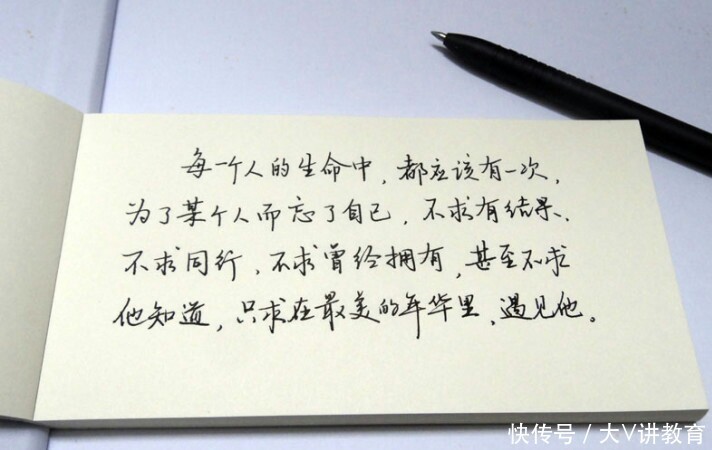 每一个人的生命中，都应该有一次，
为了某个人而忘了自己，不求有结果、
不求同行、不求曾经拥有，甚至不求
他知道，只求在最美的年华里、遇见他。
快传号／大V讲教育